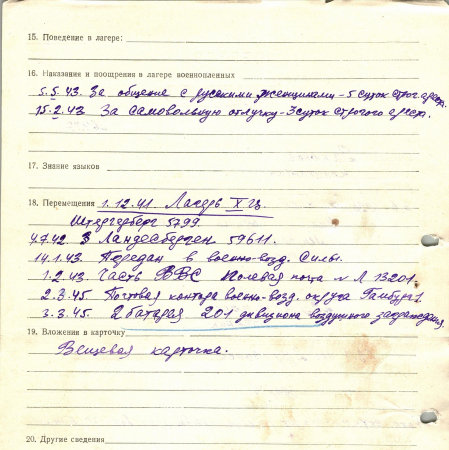 15. Поведение в лагере:
16. Наказания и поощрения в лагере военнопленных
5.5.43. За общение с русскими женщинами - 5 суток строг. арест.
15.2.43. За самовольную отлучку - 3 суток строгого арест.
17. Знание языков
18. Перемещения 1.12.41. Лагерь X Ц.
5799.
4.7.42. В Ландесберген 59611.
14.1.43 Передан в военно-возд. Силы.
1.2.43. Часть ВВС Полевая почта № Л 13201.
2.3.45. Почтовая контора военно-возд. округа Гамбург 1
3.3.45. 2 батарея 201 дивизиона воздушного заграждения.
19. Вложения в карточку
Вещевая карточка.
20. Другие сведения